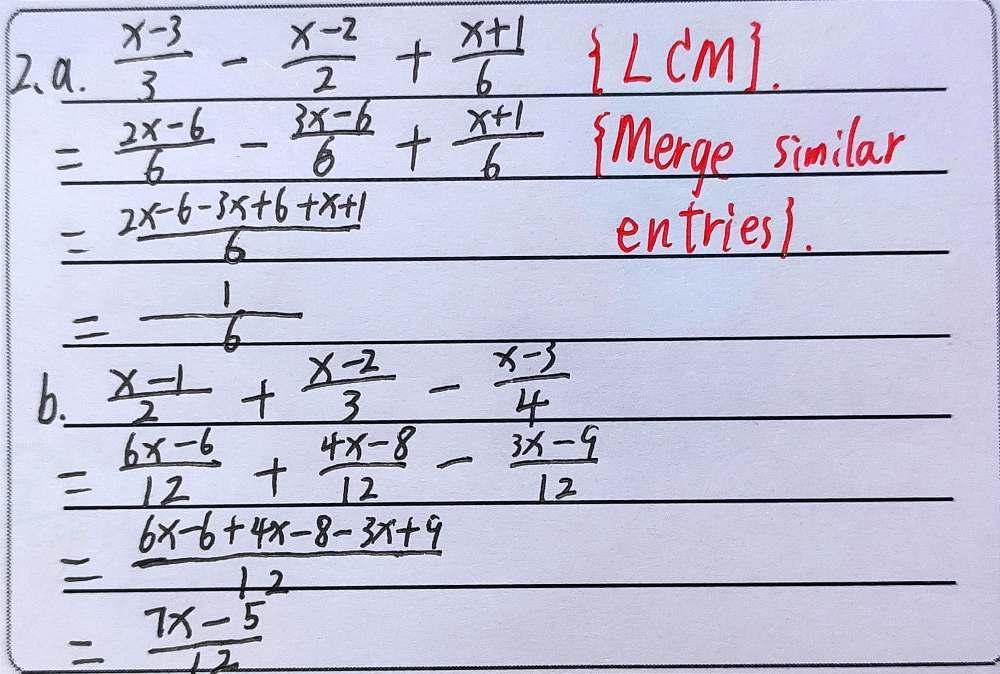 2.a. (x-3)/3 - (x-2)/2 + (x+1)/6 {LCM}.
= (2x-6)/6 - (3x-6)/6 + (x+1)/6 {Merge similar
= (2x-6-3x+6+x+1)/6 entries}.
= 1/6
b. (x-1)/2 + (x-2)/3 - (x-3)/4
= (6x-6)/12 + (4x-8)/12 - (3x-9)/12
= (6x-6+4x-8-3x+9)/12
= (7x-5)/12